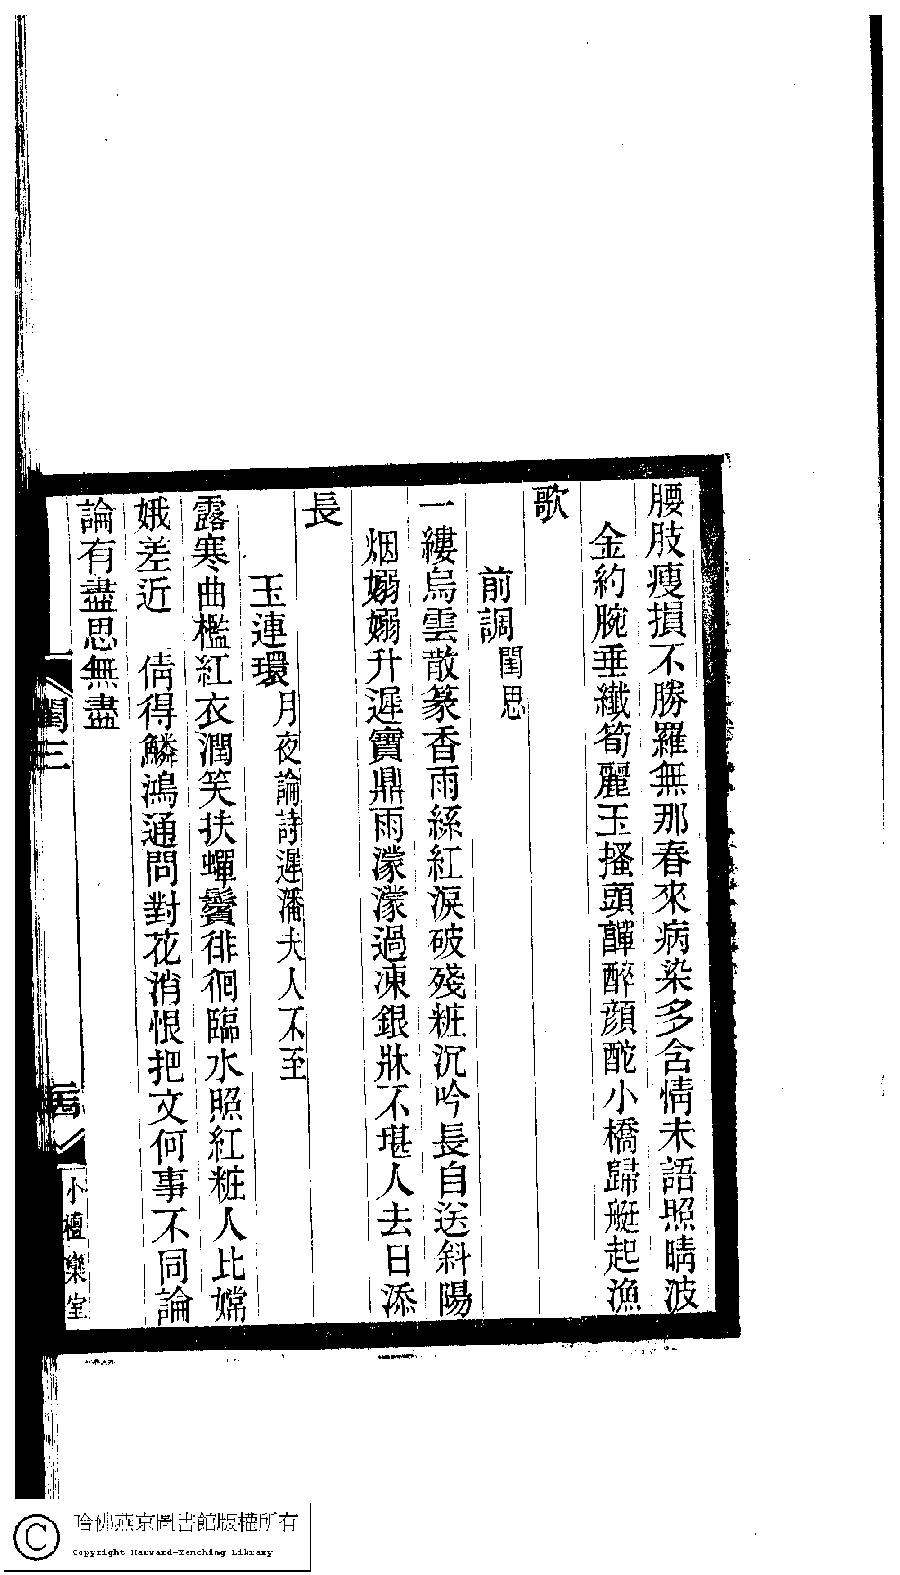 腰肢瘦損不勝羅無那春來病染多含情未語照晴波
金約腕垂纖筍麗玉搔頭嚲醉顏酡小橋歸艇起漁
歌
前調閨思
一縷烏雲散篆香雨絲紅淚破殘粧沉吟長自送斜陽
烟嫋嫋升遲寶鼎雨濛濛過凍銀牀不堪人去日添
長
玉連環月夜論詩遲潘夫人不至
露寒曲檻紅衣潤笑扶蟬鬢徘徊臨水照紅粧人比嫦
娥差近 倩得鱗鴻通問對花消恨把文何事不同論
論有盡思無盡
閨三
小檀欒室
哈佛燕京圖書館版權所有
Copyright Harvard-Yenching Library